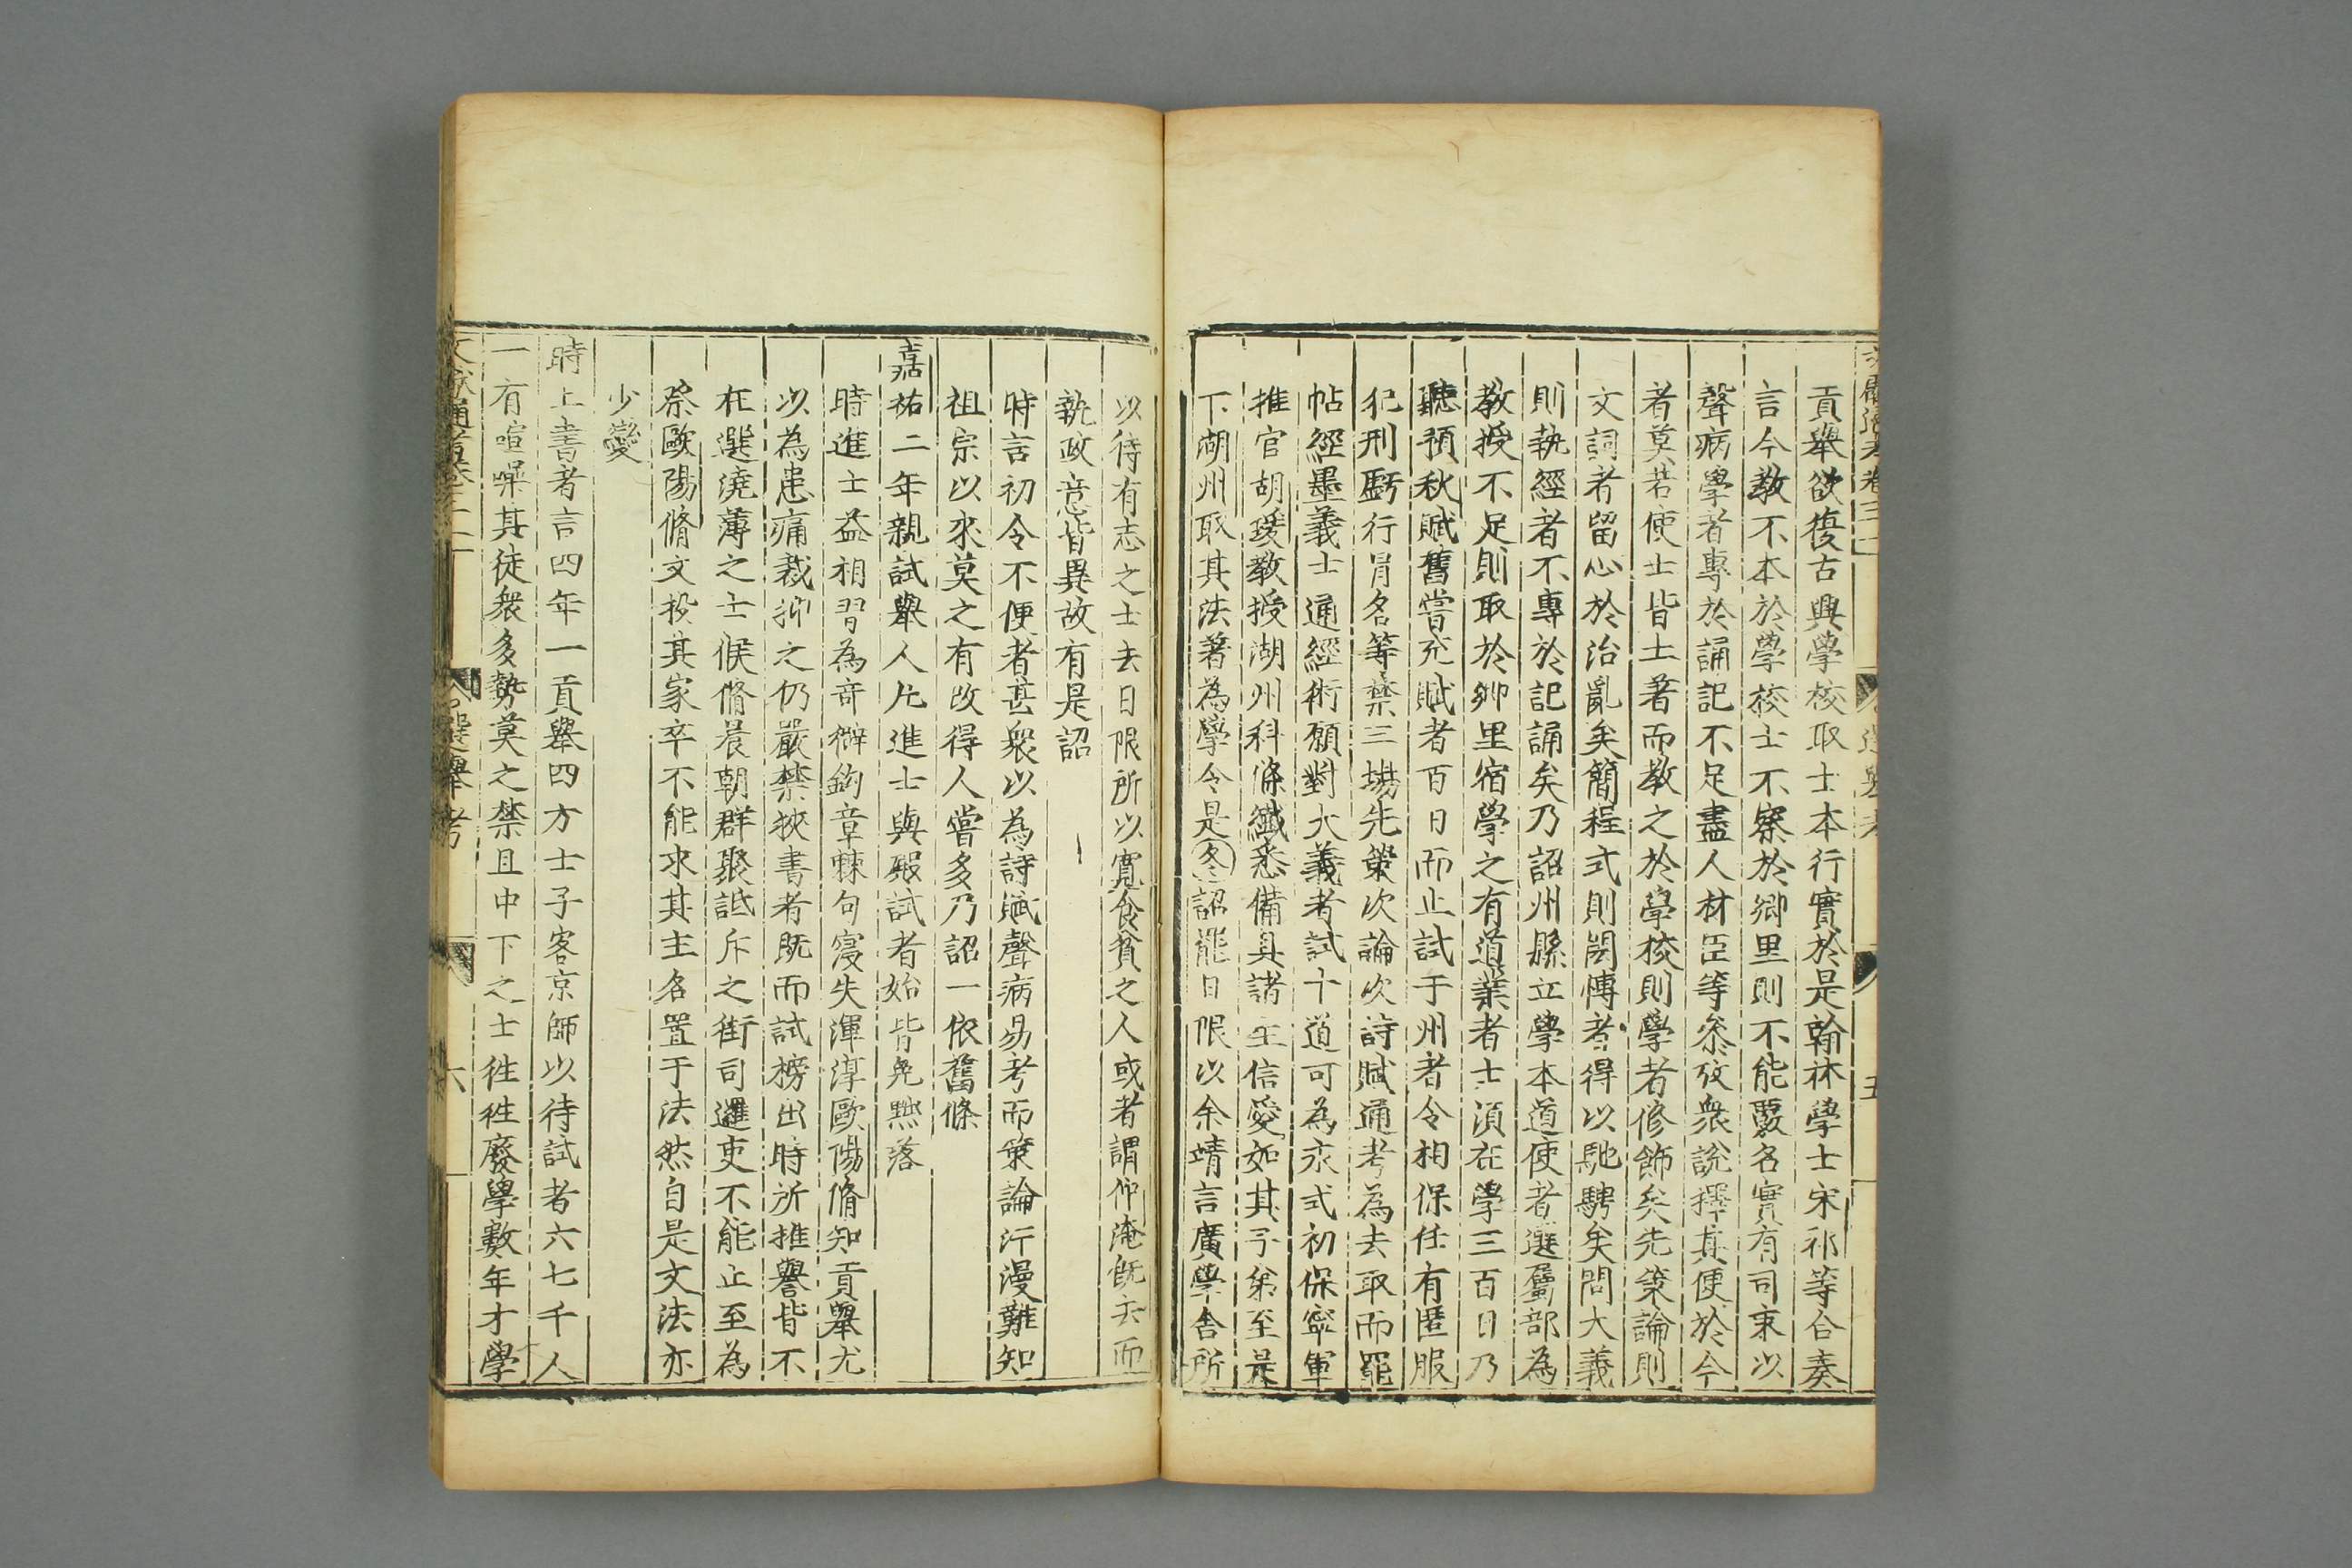 文獻通考卷三十一
選舉考
五
貢舉欲復古興學校取士本行實於是翰林學士宋祁等合奏
言今教不本於學校士不察於鄉里則不能覈名實有司束以
聲病學者專於誦記不足盡人材臣等參攷衆說擇其便於今
者莫若使士皆土著而教之於學校則學者修飾矣先策論則
文詞者留心於治亂矣簡程式則閎博者得以馳騁矣問大義
則執經者不專於記誦矣乃詔州縣立學本道使者選屬部為
教授不足則取於鄉里宿學之有道業者士須在學三百日乃
聽預秋賦舊嘗充賦者百日而止試于州者令相保任有匿服
犯刑虧行冒名等禁三場先策次論次詩賦通考為去取而罷
帖經墨義士通經術願對大義者試十道可為永式初保寧軍
推官胡瑗教授湖州科條纎悉備具諸生信愛如其子弟至是
下湖州取其法著為學令是冬詔罷日限以余靖言廣學舍所
以待有志之士去日限所以寬食貧之人或者謂仲淹旣去而
執政意皆異故有是詔
時言初令不便者甚衆以為詩賦聲病易考而策論汗漫難知
祖宗以來莫之有改得人嘗多乃詔一依舊條
嘉祐二年親試舉人凡進士與殿試者始皆免黜落
時進士益相習為奇僻鈎章棘句寖失渾淳歐陽脩知貢舉尤
以為患痛裁抑之仍嚴禁挾書者既而試榜出時所推譽皆不
在選澆薄之士候脩晨朝群聚詆斥之街司邏吏不能止至為
祭歐陽脩文投其家卒不能求其主名置于法然自是文法亦
少變
時上書者言四年一貢舉四方士子客京師以待試者六七千人
一有喧噪其徒衆多勢莫之禁且中下之士徃徃廢學數年才學
文獻通考卷三十一
選舉考
六